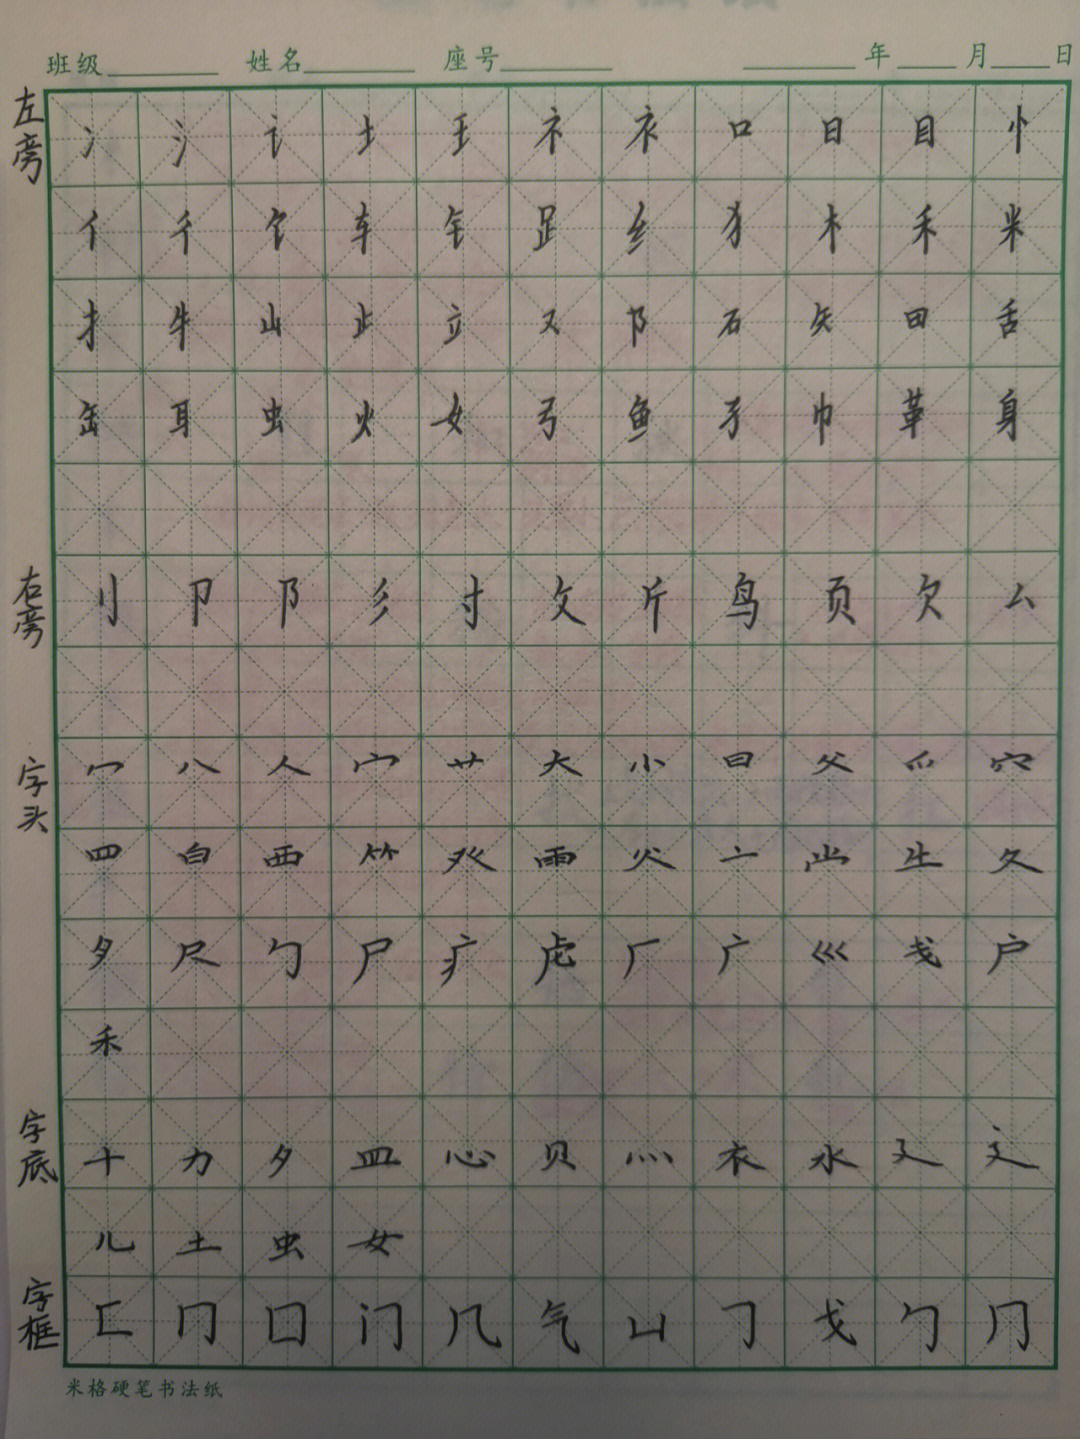 班级 姓名 座号 年 月 日
左旁
冫 氵 讠 土 王 礻 衤 口 日 目 忄
亻 彳 饣 车 钅 𧾷 纟 犭 木 禾 米
扌 牛 山 止 立 又 阝 石 矢 田 舌
缶 耳 虫 火 女 弓 鱼 孑 巾 革 身
右旁
刂 卩 阝 彡 寸 攵 斤 鸟 页 欠 厶
字头
冖 八 人 宀 艹 大 小 曰 父 爫 穴
四 白 西 𥫗 癶 雨 火 亠 龸 牛 夂
夕 尺 勹 尸 疒 虍 厂 广 巛 戈 户
禾
字底
十 力 夕 皿 心 贝 灬 衣 水 廴 辶
儿 土 虫 女
字框
匚 冂 囗 门 几 气 凵 𠃌 戈 勹 冂
米格硬笔书法纸